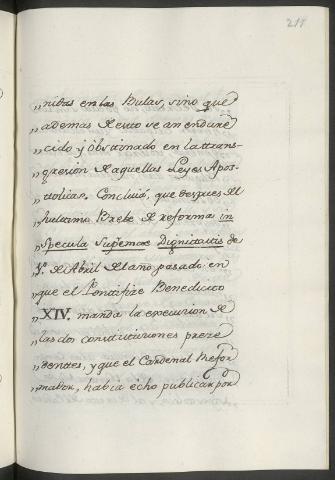 211
„nibas en las Bulas, sino que
„ademas de esto se an endure
„cido y obstinado en la trans-
„gresion de aquellas Leyes Apos-
„tolicas. Concluiá, que despues del
„hultimo Brebe de reforma in
„Specula Supremæ Dignitatis de
„1º. de Abril del año pasado en
„que el Pontifize Benedicto
„XIV. manda la execucion de
„las dos constituciones prece
„dentes, y que el Cardenal Refor
„mador, habia echo publicar por